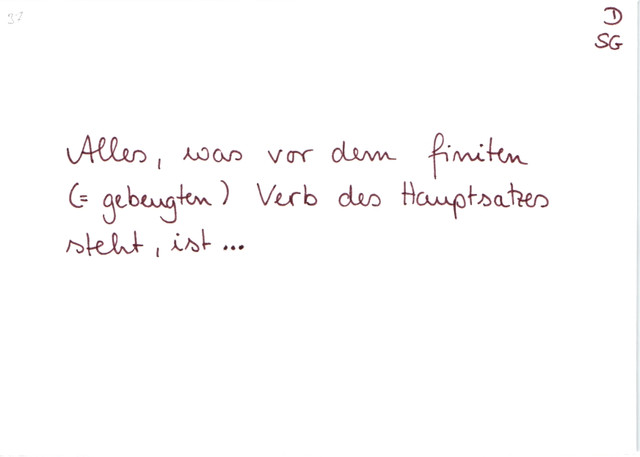 D
SG
Alles, was vor dem finiten
(= gebeugten) Verb des Hauptsatzes
steht, ist ...